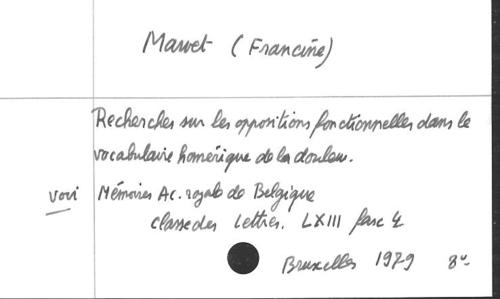 Mawet (Francine)
Recherches sur les oppositions fonctionnelles dans le
vocabulaire homérique de la douleur.
voir Mémoires Ac. royale de Belgique
Classe des Lettres. LXIII fasc 4
Bruxelles 1979 8°